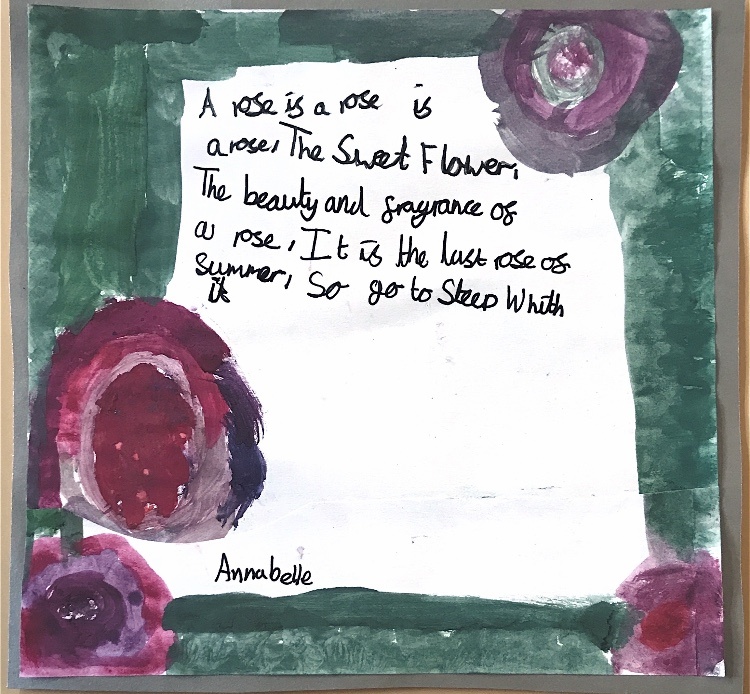 A rose is a rose is
a rose, The Sweet Flower,
The beauty and fragrance of
a rose, It is the last rose of
Summer, So go to Sleep Whith
it
Annabelle